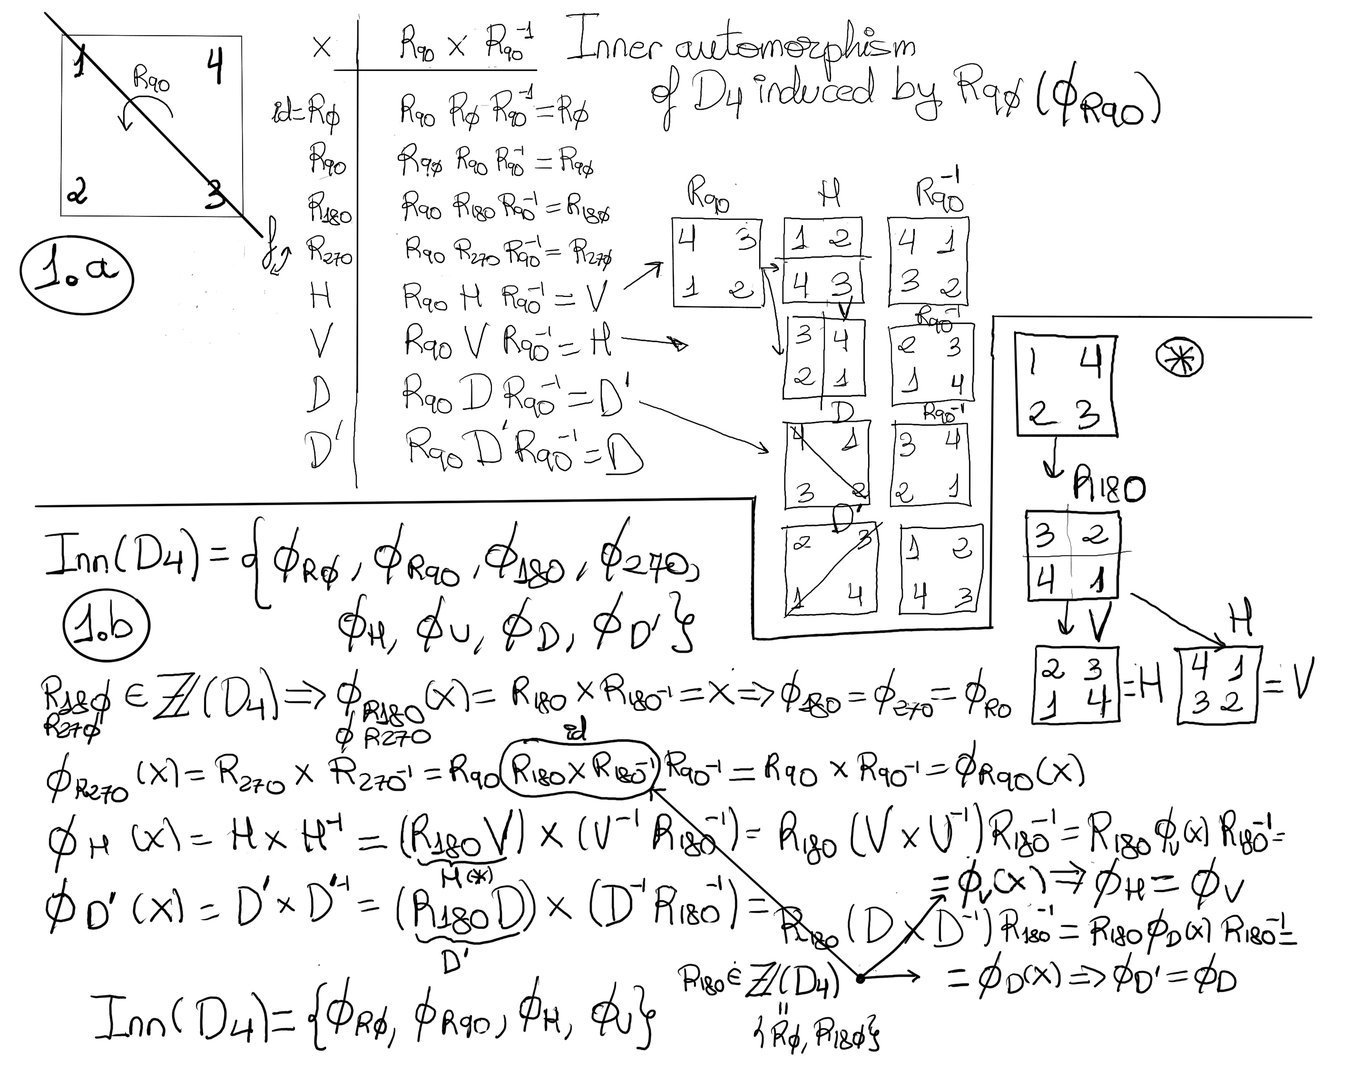 1 4
R90
2 3
f
1.a
x R90 x R90⁻¹
id=RØ R90 RØ R90⁻¹=RØ
R90 R9Ø R90 R90⁻¹=R9Ø
R180 R90 R180 R90⁻¹=R18Ø
R270 R90 R270 R90⁻¹=R27Ø
H R90 H R90⁻¹=V
V R90 V R90⁻¹=H
D R90 D R90⁻¹=D'
D' R90 D' R90⁻¹=D
Inner automorphism
of D4 induced by R9Ø (ϕR90)
R90 H R90⁻¹
4 3 1 2 4 1
1 2 4 3 3 2
V R90⁻¹
3 4 2 3
2 1 1 4
D R90⁻¹
4 1 3 4
3 2 2 1
D'
2 3 1 2
1 4 4 3
1 4
2 3
*
R180
3 2
4 1
V H
2 3 4 1
1 4 =H 3 2 =V
Inn(D4)={ϕRØ, ϕR90, ϕ180, ϕ270,
1.b
ϕH, ϕV, ϕD, ϕD'}
R18Ø ∈ Z(D4)⇒ϕR180(x)=R180 x R180⁻¹=x⇒ϕ180=ϕ270=ϕR0
R27Ø ϕR270
id
ϕR270(x)=R270 x R270⁻¹=R90(R180 x R180⁻¹)R90⁻¹=R90 x R90⁻¹=ϕR90(x)
ϕH(x)=H x H⁻¹=(R180V) x (V⁻¹R180⁻¹)=R180(V x V⁻¹)R180⁻¹=R180ϕV(x)R180⁻¹=
H(*)
=ϕV(x)⇒ϕH=ϕV
ϕD'(x)=D' x D'⁻¹=(R180D) x (D⁻¹R180⁻¹)=R180(D x D⁻¹)R180⁻¹=R180ϕD(x)R180⁻¹=
D'
R180∈Z(D4)
=ϕD(x)⇒ϕD'=ϕD
=
{RØ, R18Ø}
Inn(D4)={ϕRØ, ϕR90, ϕH, ϕV}